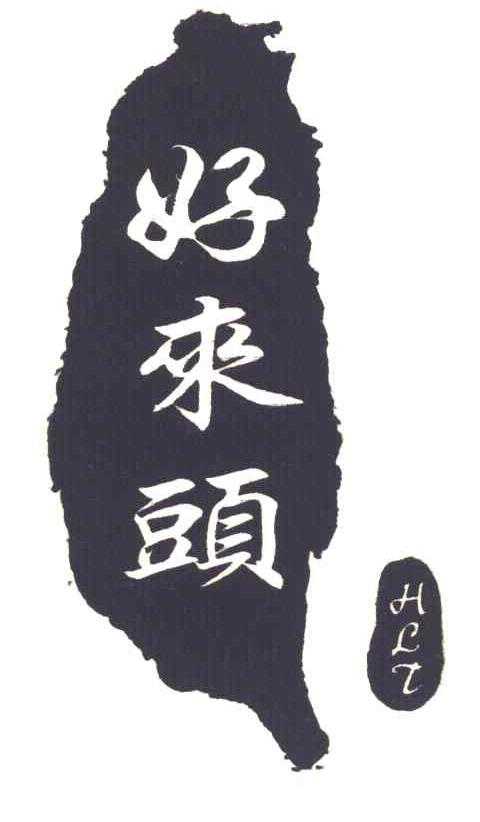 好來頭
HLT